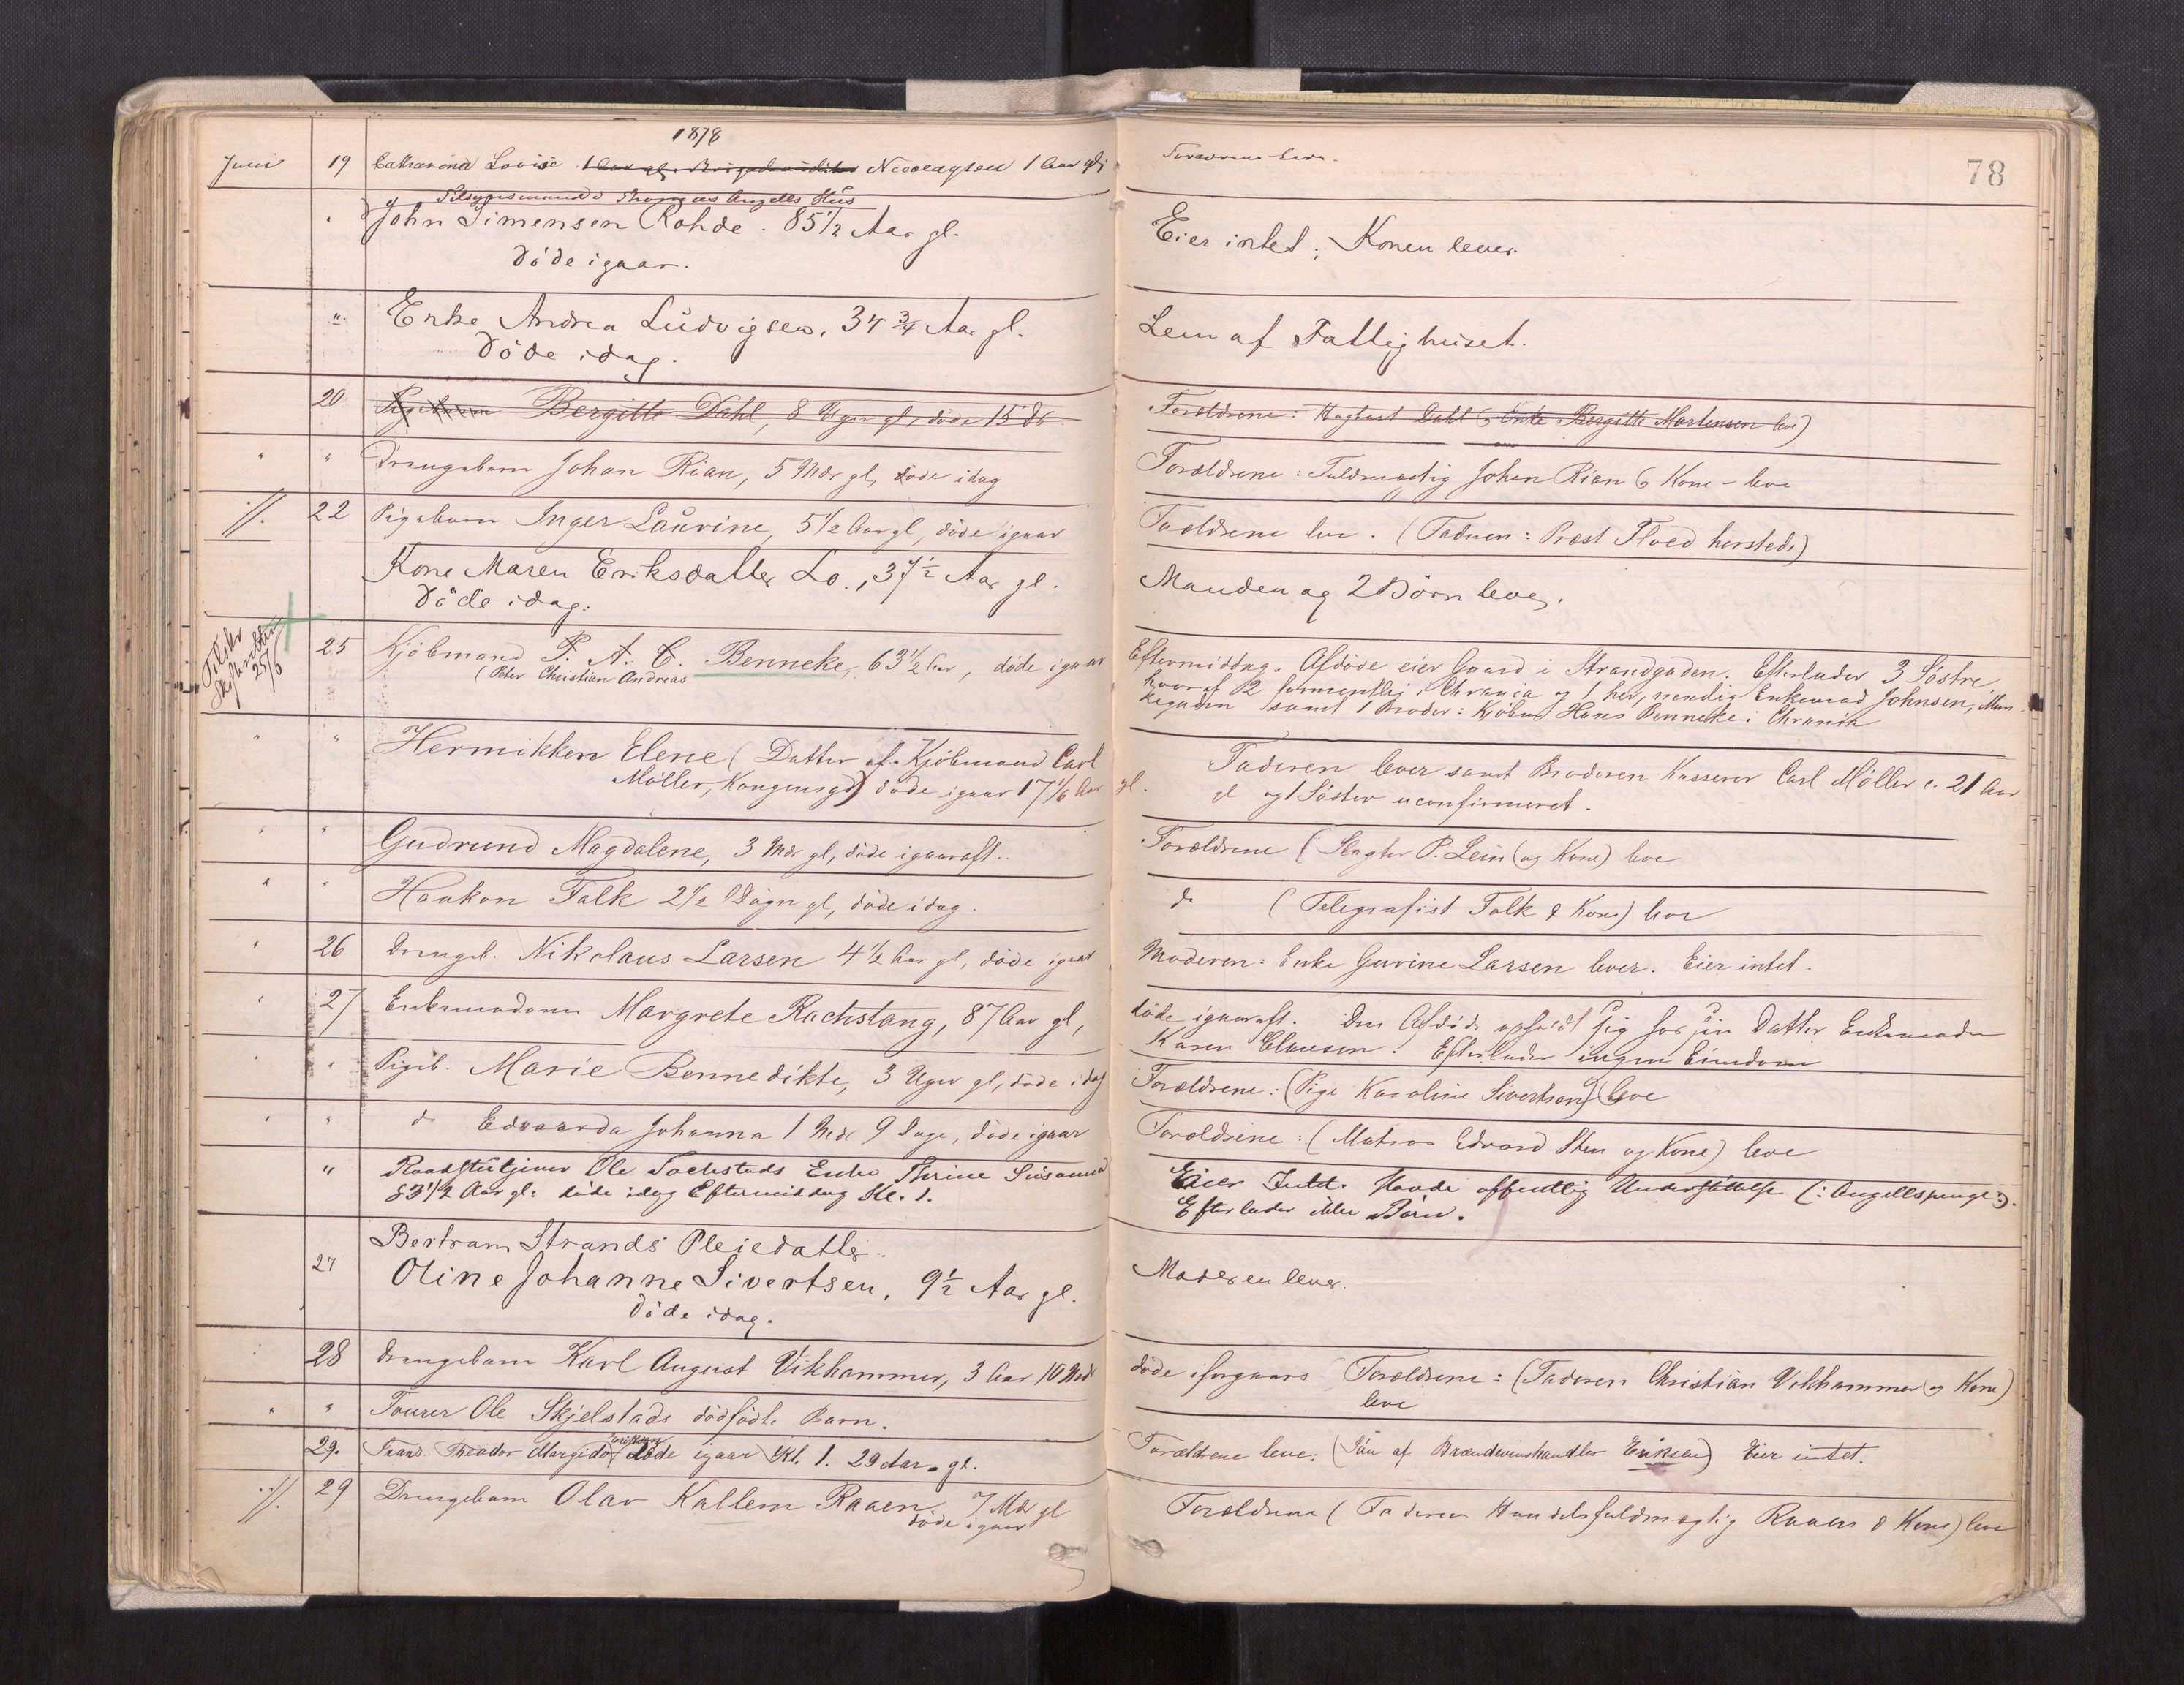 1878
78
Juni 19 Catharina Lovise Nicolaysen 1 Aar gl
Forældrene leve.
Tilsynsmand v Thomas Angells Hus
" John Simensen Rohde. 85 1/2 Aar gl.
døde igaar.
Eier intet; Konen lever.
" Enke Andrea Ludvigsen, 34 3/4 Aar gl.
døde idag.
Lem af Fattighuset.
20 Pigebarn Bergitte Dahl, 8 Uger gl, døde 15 ds
Forældrene: Hagbart Dahl & Enke Bergitte Mortensen leve)
" " Drengebarn Johan Rian, 5 Mdr gl, døde idag
Forældrene: Fuldmægtig Johan Rian & Kone - leve
./. 22 Pigebarn Inger Laurine, 5 1/2 Aar gl, døde igaar
Forældrene leve. (Faderen: Præst Floed hersteds)
Kone Maren Eriksdatter Lo., 37 1/2 Aar gl.
Døde idag.
Manden og 2 Børn lever.
Tilstlr
Skifteretten
25/6
25 Kjøbmand P. A. C. Benneke, 63 1/2 Aar, døde igaar
(Peter Christian Andreas
Eftermiddag. Afdøde eier Gaard i Strandgaden. Efterlader 3 Søstre
hvoraf 2 formentlig i Chrania og 1 her, nemlig Enkemad Johnsen, Mun-
kegaden samt 1 Broder: Kjøbm Hans Benneke i Chrania
" " Hermikken Elene (Datter af Kjøbmand Carl
Møller, Kongensgd) døde igaar 17 1/6 Aar gl.
Faderen lever samt Broderen Kasserer Carl Møller c. 21 Aar
gl og 1 Søster uconfirmeret.
" " Gudrund Magdalene, 3 Mdr gl, døde igaaraft..
Forældrene (Slagter P. Lein (og Kone) leve
" " Haakon Falk 2 1/2 Døgn gl, døde idag.
do (Telegrafist Falk & Kone) leve
" 26 Drengeb. Nikolaus Larsen 4 1/2 Aar gl, døde igaar
Moderen: Enke Gurine Larsen lever. Eier intet.
" 27 Enkemadam Margrete Rachstang, 87 Aar gl,
døde igaaraft. Den Afdøde opholdt sig hos sin Datter Enkemadm
Karen Clausen. Efterlader ingen Eiendom
" " Pigeb. Marie Bennedikte, 3 Uger gl, døde idag
Forældrene: (Pige Karoline Sivertsen) leve
" " do Edvarda Johanna 1 Md 9 Dage, døde igaar
Forældrene: (Matros Edvard Sten og Kone) leve
" Raadstutjener Ole Sachstads Enke Thrine Susanna
83 1/2 Aar gl: døde idag Eftermiddag Kl. 1.
Eier Intet. Havde offentlig Understøttelse (: Angellspenge :).
Efterlader ikke Børn.
27 Bertram Strands Pleiedatter.
Oline Johanne Sivertsen, 9 1/2 Aar gl.
døde idag.
Moderen lever.
28 Drengebarn Karl August Vikhammer, 3 Aar 10 Mdr
døde iforgaars Forældrene: (Faderen Christian Vikhammer og Kone)
leve
" " Tourer Ole Skjelstads dødfødte Barn.
29. Frans Theodor Margido Eriksen døde igaar Kl. 1. 29 Aar gl.
Forældrene leve. (Søn af Brændevinshandler Eriksen) Eier intet.
./. 29 Drengebarn Olav Kallem Raaen 7 Mdr gl
døde igaar
Forældrene (Faderen Handelsfuldmægtig Raaen & Kone) leve